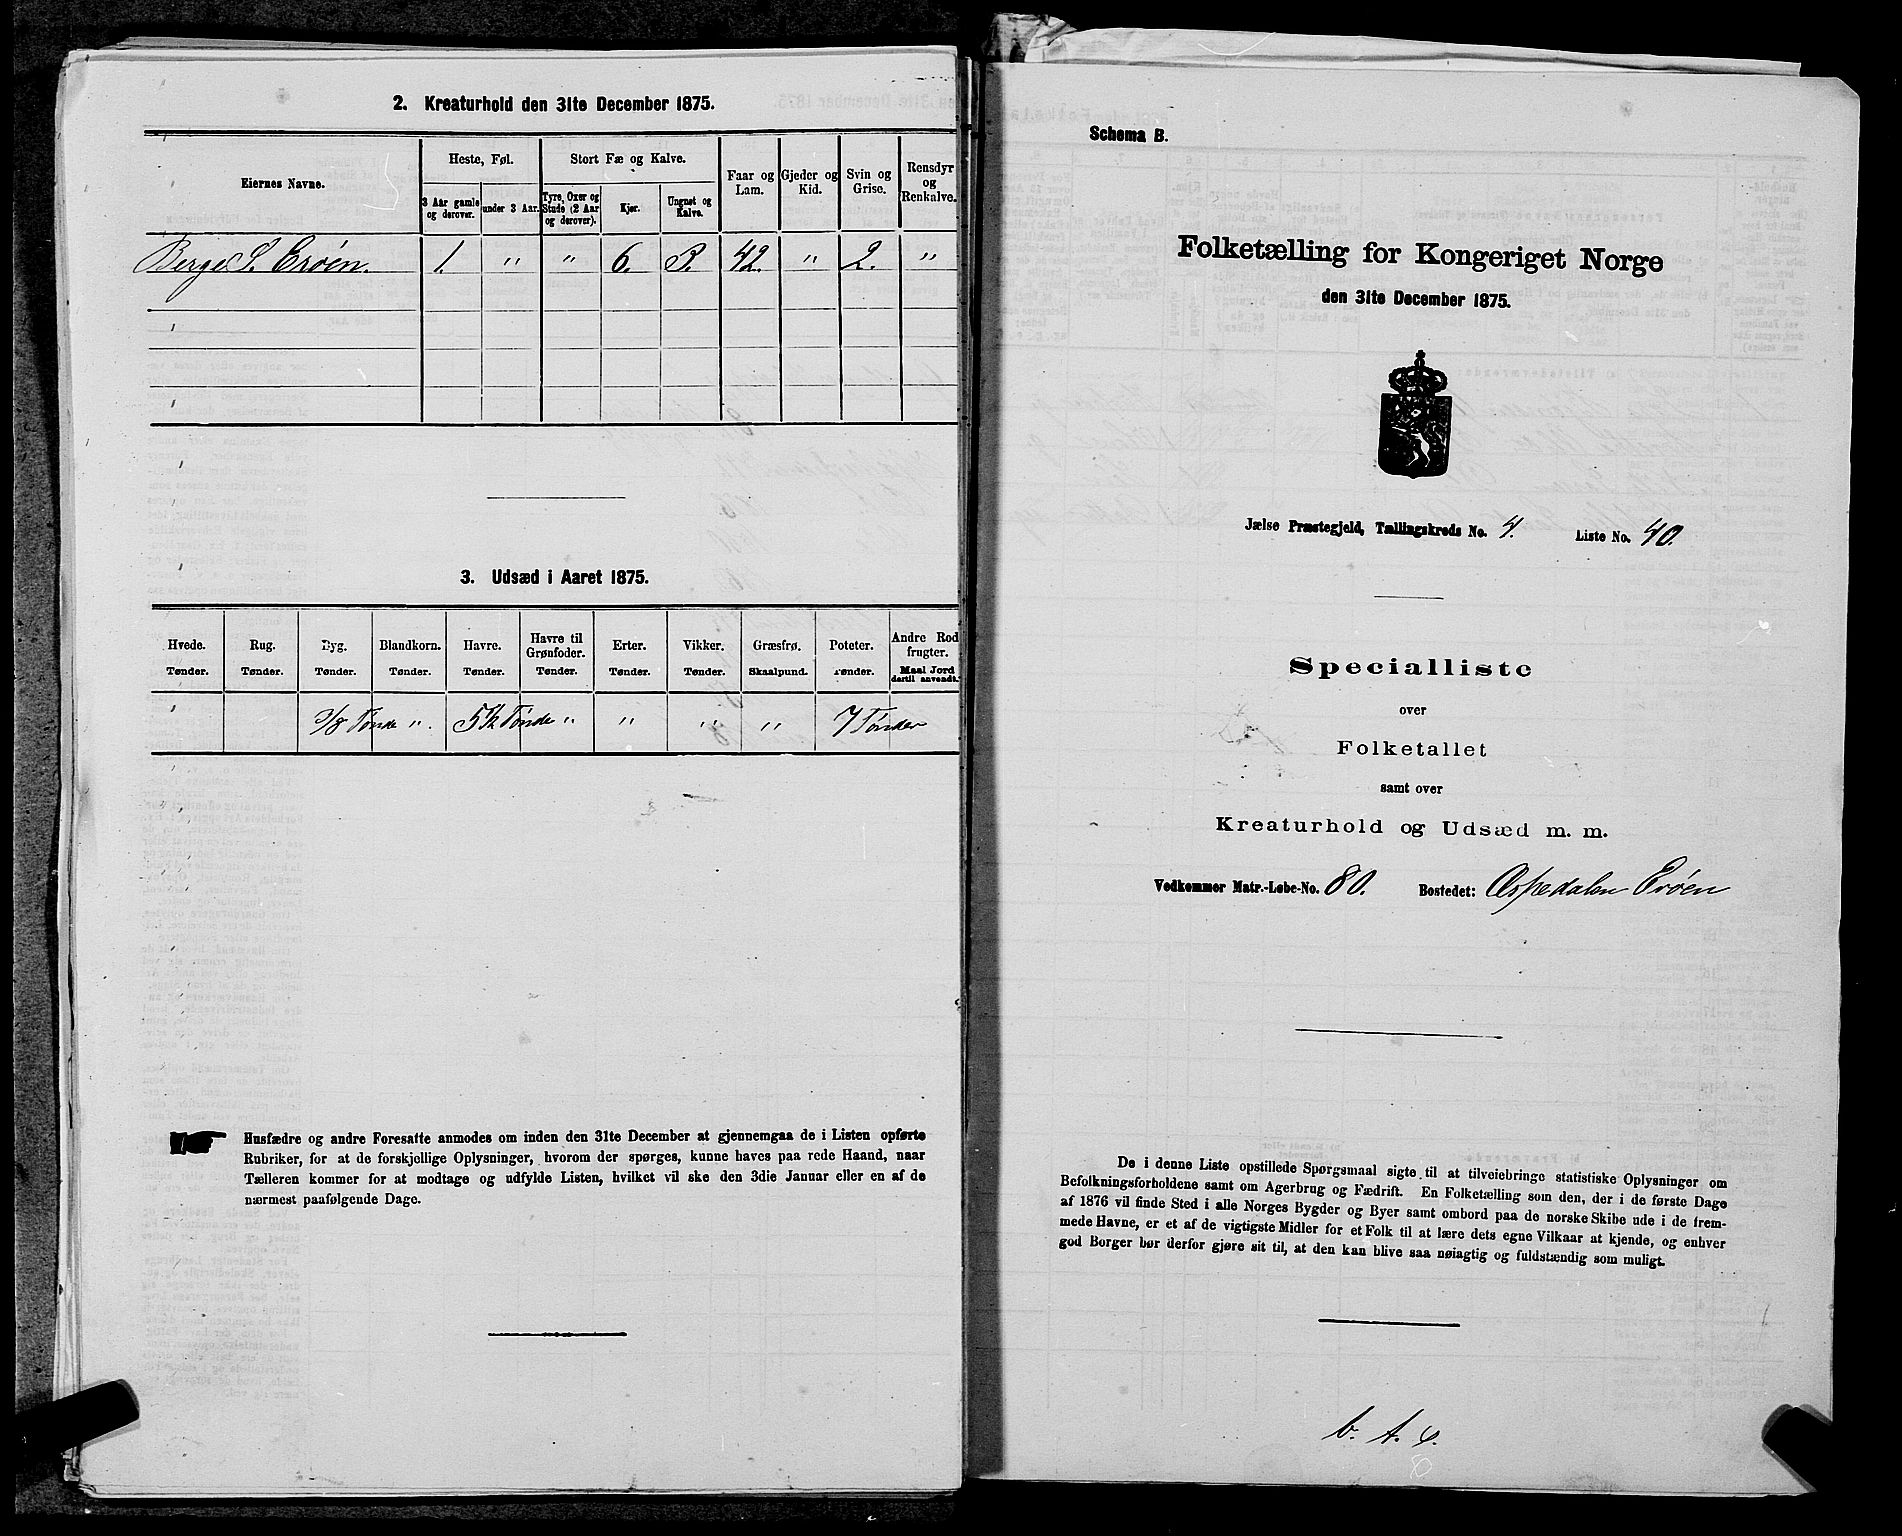 2. Kreaturhold den 31te December 1875.
Eiernes Navne.
Heste, Føl.
3 Aar gamle og derover.
under 3 Aar.
Stort Fæ og Kalve.
Tyre, Oxer og Stude (2 Aar og derover).
Kjør.
Ungnøt og Kalve.
Faar og Lam.
Gjeder og Kid.
Svin og Grise.
Rensdyr og Renkalve.
Berge S. Erøen. 1. " " 6. 3. 42. " 2. "
3. Udsæd i Aaret 1875.
Hvede. Rug. Byg. Blandkorn. Havre. Havre til Grønfoder. Erter. Vikker. Græsfrø. Poteter. Andre Rodfrugter.
Tønder. Tønder. Tønder. Tønder. Tønder. Tønder. Tønder. Tønder. Skaalpund. Tønder. Maal Jord dertil anvendt.
3/8 Tønde ". 5½ Tønde " " " " 7 Tønder
Husfædre og andre Foresatte anmodes om inden den 31te December at gjennemgaa de i Listen opførte
Rubriker, for at de forskjellige Oplysninger, hvorom der spørges, kunne haves paa rede Haand, naar
Tælleren kommer for at modtage og udfylde Listen, hvilket vil ske den 3die Januar eller en af de
nærmest paafølgende Dage.
Schema B.
Folketælling for Kongeriget Norge
den 31te December 1875.
Jælse Præstegjeld, Tællingskreds No. 4. Liste No. 40.
Specialliste
over
Folketallet
samt over
Kreaturhold og Udsæd m. m.
Vedkommer Matr.-Løbe-No. 80. Bostedet: Aspedalen Erøen
De i denne Liste opstillede Spørgsmaal sigte til at tilveiebringe statistiske Oplysninger om
Befolkningsforholdene samt om Agerbrug og Fædrift. En Folketælling som den, der i de første Dage
af 1876 vil finde Sted i alle Norges Bygder og Byer samt ombord paa de norske Skibe ude i de frem-
mede Havne, er et af de vigtigste Midler for et Folk til at lære dets egne Vilkaar at kjende, og enhver
god Borger bør derfor gjøre sit til, at den kan blive saa nøiagtig og fuldstændig som muligt.